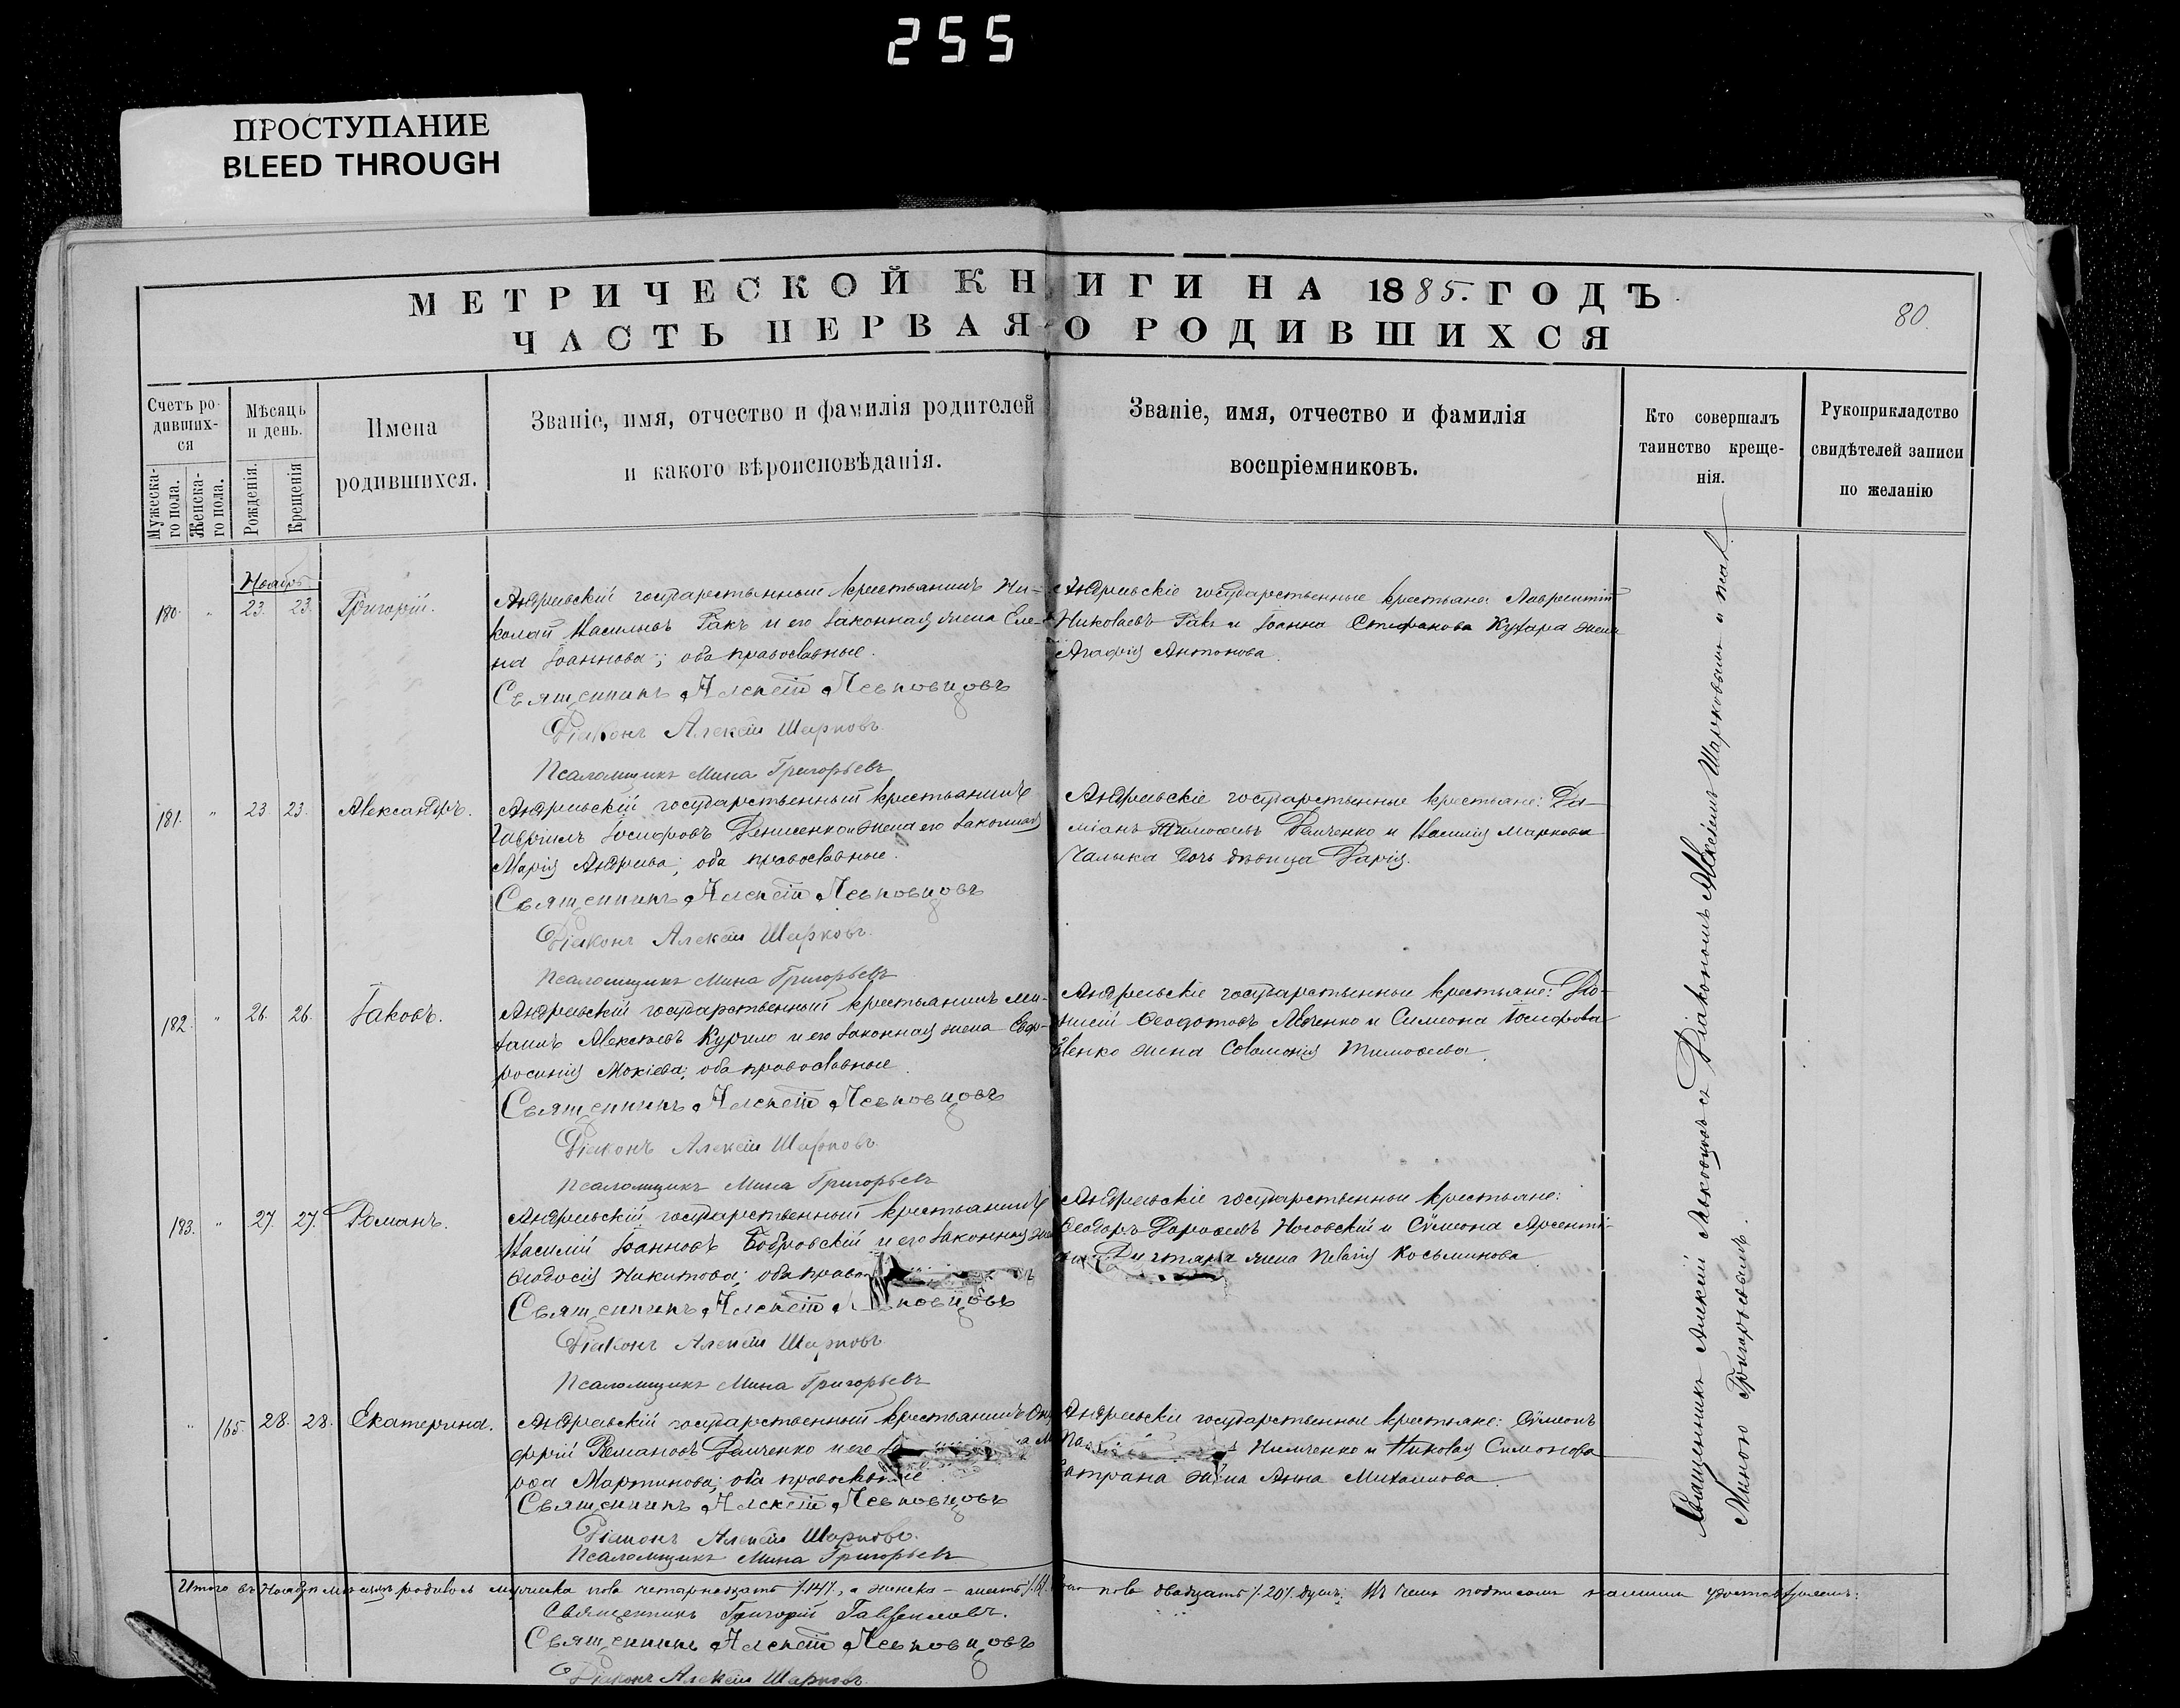 255
ПРОСТУПАНИЕ
BLEED THROUGH
МЕТРИЧЕСКОЙ КНИГИ НА 1885. ГОДЪ
ЧАСТЬ ПЕРВАЯ О РОДИВШИХСЯ
80.
Счетъ ро-
дивших-
ся
Мужеска-
го пола.
Женска-
го пола.
Мѣсяць
и день.
Рожденія.
Крещенія
Имена
родившихся.
Званіе, имя, отчество и фамилія родителей
и какого вѣроисповѣданія.
Званіе, имя, отчество и фамилія
воспріемниковъ.
Кто совершалъ
таинство креще-
нія.
Рукоприкладство
свидѣтелей записи
по желанію
Ноябрь
180. " 23. 23. Григорій.
Андреевскій государственный крестьянинъ Ни-
колай Васильевъ Гакъ и его законная жена Еле-
на Іоаннова; оба православные.
Священникъ Алексій Левковцовъ
Діаконъ Алексій Шарковъ
Псаломщикъ Мина Григорьевъ
Андреевскіе государственные крестьяне: Лаврентій
Николаевъ Гакъ и Іоанна Стефанова Кухара жена
Агафія Антонова.
181. " 23. 23. Александръ.
Андреевскій государственный крестьянинъ
Гавріилъ Іосифовъ Денисенко и жена его законная
Марія Андреева; оба православные.
Священникъ Алексій Левковцовъ
Діаконъ Алексій Шарковъ.
Псаломщикъ Мина Григорьевъ
Андреевскіе государственные крестьяне: Да-
міанъ Тимоѳеевъ Демченко и Василія Маркова
Чалыка дочь дѣвица Дарія.
182. " 26. 26. Іаковъ.
Андреевскій государственный крестьянинъ Ми-
хаилъ Алексѣевъ Курило и его законная жена Евф-
росинія Мокіева; оба православные.
Священникъ Алексій Левковцовъ
Діаконъ Алексій Шарковъ.
Псаломщикъ Мина Григорьевъ
Андреевскіе государственные крестьяне: Діо-
нисій Ѳеодотовъ Левченко и Симеона Іосифова
жена Соломонія Тимоѳеева.
183. " 27. 27. Романъ.
Андреевскій государственный крестьянинъ
Василій Іоанновъ Бобровскій и его законная
Ѳеодосія Никитова; оба
Священникъ Алексій
Діаконъ Алексій Шарковъ
Псаломщикъ Мина Григорьевъ
Андреевскіе государственные крестьяне:
Ѳеодоръ Дороѳеевъ Носовскій и Сѵмеона Арсенті-
жена Пелагія Косьминова
" 165. 28. 28. Екатерина.
Андреевскій государственный крестьянинъ Ону-
фрій Романовъ Демченко и его
Мартинова; оба православные
Священникъ Алексій Левковцовъ
Діаконъ Алексій Шарковъ.
Псаломщикъ Мина Григорьевъ
Андреевскіе государственные крестьяне: Сѵмеонъ
Нимченко и Николая Симонова
жена Анна Михаилова
Священникъ Алексій Левковцовъ съ Діакономъ Алексіемъ Шарковымъ и псал.
Миною Григорьевымъ.
Итого въ Ноябрѣ мѣсяцѣ родилось мужеска пола четырнадцать /.14/., а женска – шесть /.6/. пола двадцать /.20/. душъ; Въ чемъ подписомъ нашимъ удостовѣряемъ:
Священникъ Григорій Гавриловъ.
Священникъ Алексій Левковцовъ
Діаконъ Алексій Шарковъ.